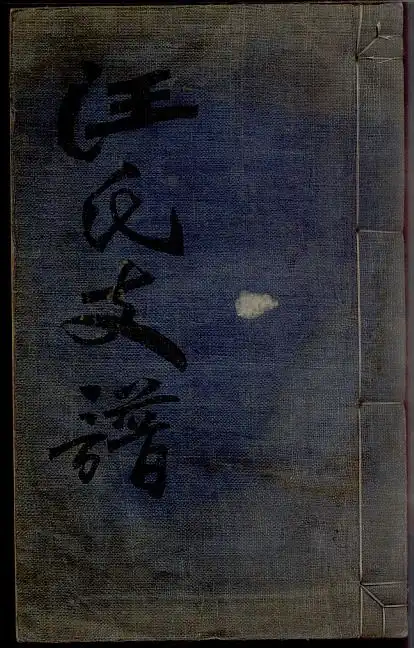 汪氏支譜